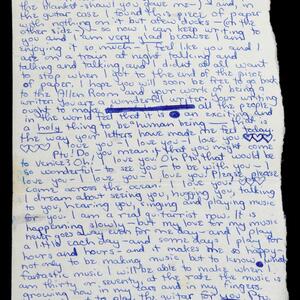 the blanket-shawl you gave me-) and, in
the guitar case I found a piece of paper
with notes on it but after notes - (on the
other side -) - so now I can keep writing to
you and I am very glad because I am
enjoying it so much - I feel like you and I
are on a train at night talking and
talking and talking and I did not at all want
to stop when I got to the end of the piece
of paper. I hope you will soon be free to go back
to the Allen Room and your work of being a
writer. You are a wonderful
the world feel that it is an exciting and
a holy thing to be a human being - that is
the way your letters have made me feel today.
I love you - I love you - I love you
you mean that you might come
to Venice? Oh I love you. Oh Ptu that would be
so wonderful - to see you - to be with you - I
love you - I love you - I love you. Please, please
come across the ocean. I love you.
I dream about seeing you, hugging you, talking
to you, hearing you, singing and playing music
for you. I am a real guitarrist now. It is
happening slowly - but my love for my music
never goes away even for one day - and I play
a little each day - and some days I play for
hours and hours - and it makes me so happy -
not only to be making music, but to know what
fantastic music I will be able to make when I
am thirty or seventy, at the rate the music is
growing now in my ears and my fingers.